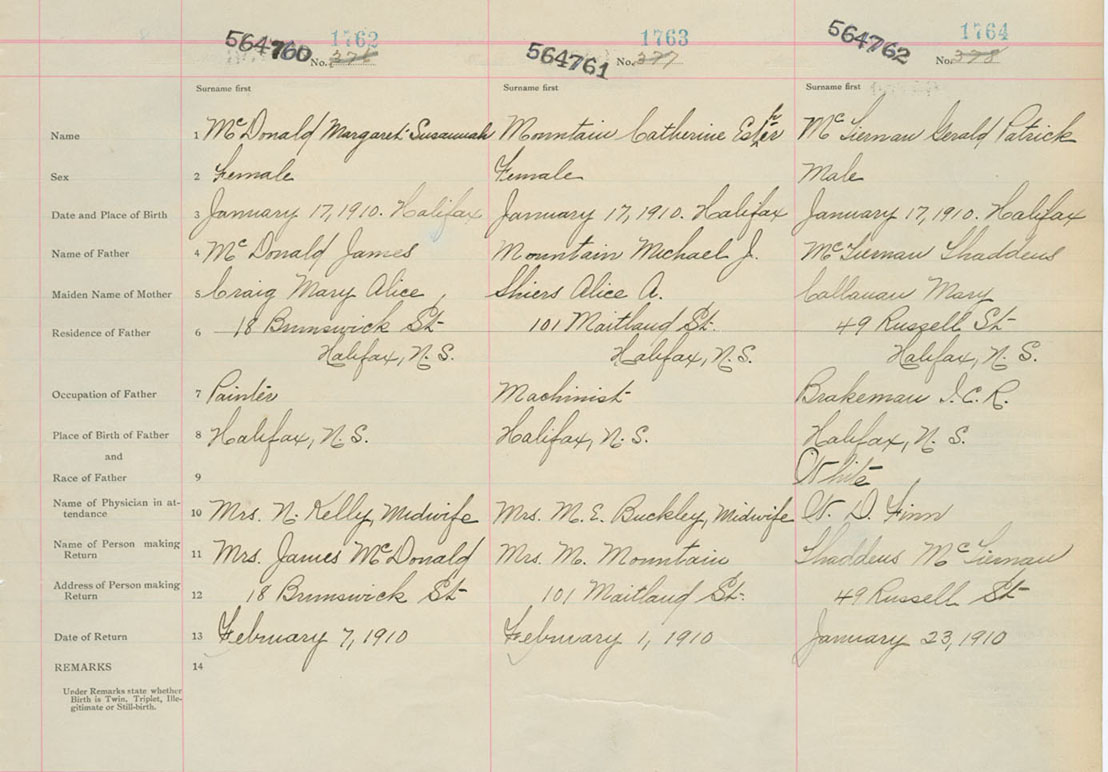 564760 1762 564761 1763 564762 1764
No. 376 No. 377 No. 378
Surname first Surname first Surname first
Name 1 McDonald Margaret Susannah Mountain Catherine Esther McTiernan Gerald Patrick
Sex 2 Female Female Male
Date and Place of Birth 3 January 17, 1910. Halifax January 17, 1910. Halifax January 17, 1910. Halifax
Name of Father 4 McDonald James Mountain Michael J. McTiernan Thaddeus
Maiden Name of Mother 5 Craig Mary Alice Shiers Alice A. Callanan Mary
Residence of Father 6 18 Brunswick St- 101 Maitland St. 49 Russell St-
Halifax, N.S. Halifax, N.S. Halifax, N.S.
Occupation of Father 7 Painter Machinist Brakeman I.C.R.
Place of Birth of Father 8 Halifax, N.S. Halifax, N.S. Halifax, N.S.
and
Race of Father 9 White
Name of Physician in at-
tendance 10 Mrs. N. Kelly, Midwife Mrs. M.E. Buckley, Midwife W. D. Finn
Name of Person making
Return 11 Mrs. James McDonald Mrs. M. Mountain Thaddeus McTiernan
Address of Person making
Return 12 18 Brunswick St- 101 Maitland St- 49 Russell St-
Date of Return 13 February 7, 1910 February 1, 1910 January 23, 1910
REMARKS 14
Under Remarks state whether
Birth is Twin, Triplet, Ille-
gitimate or Still-birth.